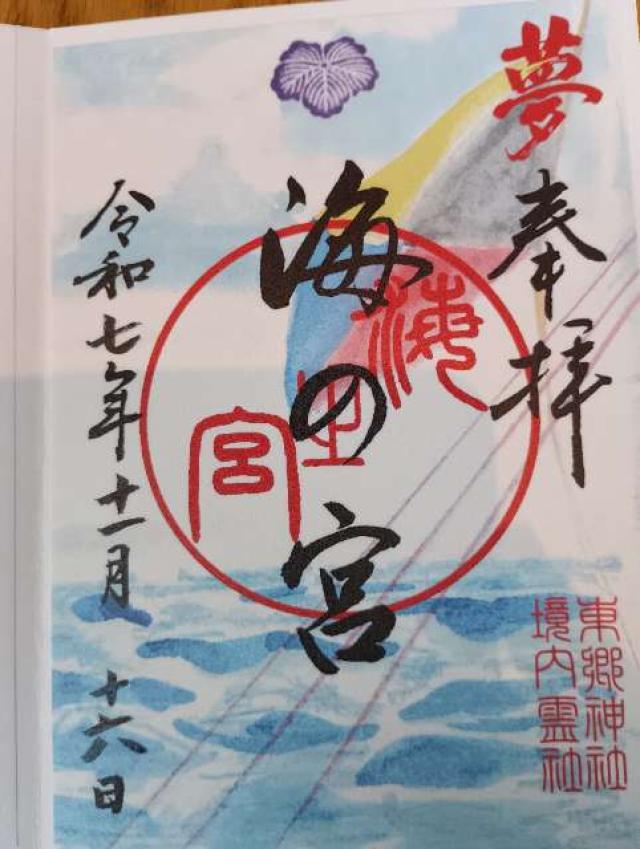 夢
奉拝
海の宮
海
之
宮
東郷神社
境内霊社
令和七年十一月十六日